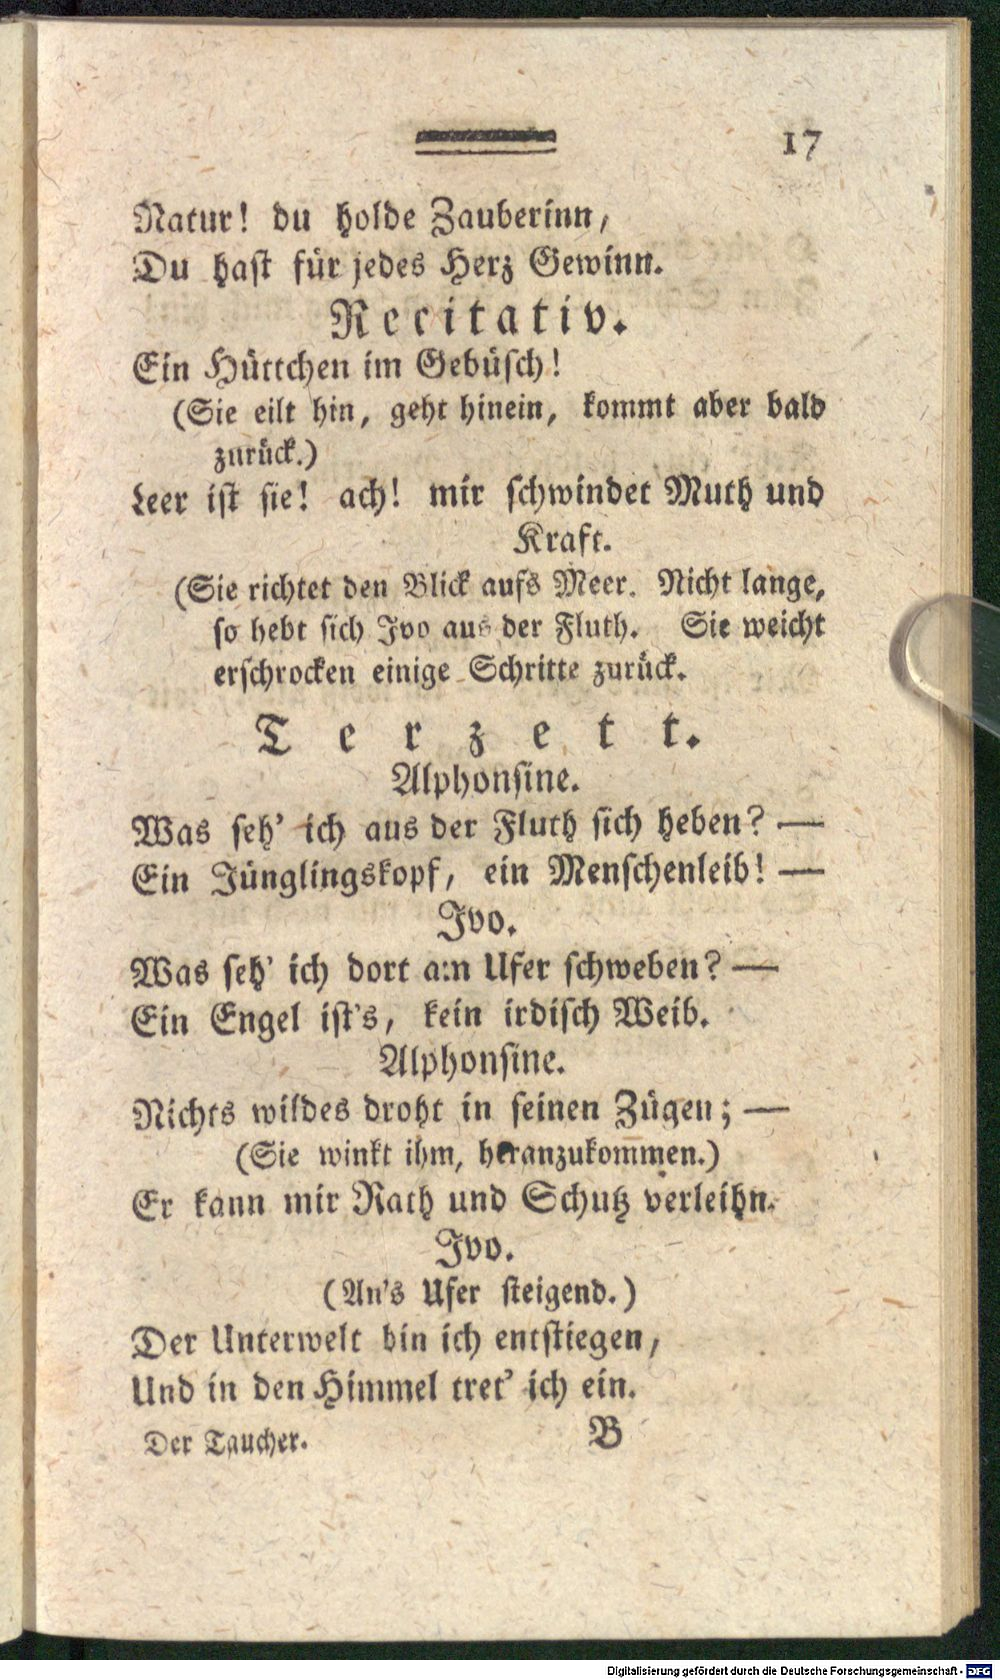 17
Natur! du holde Zauberinn,
Du hast für jedes Herz Gewinn.
Recitativ.
Ein Hüttchen im Gebüsch!
(Sie eilt hin, geht hinein, kommt aber bald
zurück.)
Leer ist sie! ach! mir schwindet Muth und
Kraft.
(Sie richtet den Blick aufs Meer. Nicht lange,
so hebt sich Ivo aus der Fluth. Sie weicht
erschrocken einige Schritte zurück.
Terzett.
Alphonsine.
Was seh' ich aus der Fluth sich heben? —
Ein Jünglingskopf, ein Menschenleib! —
Ivo.
Was seh' ich dort am Ufer schweben? —
Ein Engel ist's, kein irdisch Weib.
Alphonsine.
Nichts wildes droht in seinen Zügen; —
(Sie winkt ihm, heranzukommen.)
Er kann mir Rath und Schutz verleihn.
Ivo.
(An's Ufer steigend.)
Der Unterwelt bin ich entstiegen,
Und in den Himmel tret' ich ein.
Der Taucher. B
Digitalisierung gefördert durch die Deutsche Forschungsgemeinschaft - DFG